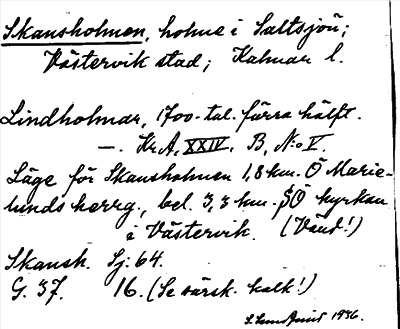 Skansholmen, holme i Saltsjön;
Västervik stad; Kalmar l.
Lindholmar, 1700-tal. förra hälft.
—. Kr.A. XXIV. B, N:o V.
Läge för Skansholmen 1,8 km. Ö Marie-
lunds herrg., bel. 3,3 km. SÖ kyrkan
i Västervik. (Vänd!)
Skansh. Sj: 64.
G. 37. 16. (Se särsk. kalk!)
1936.